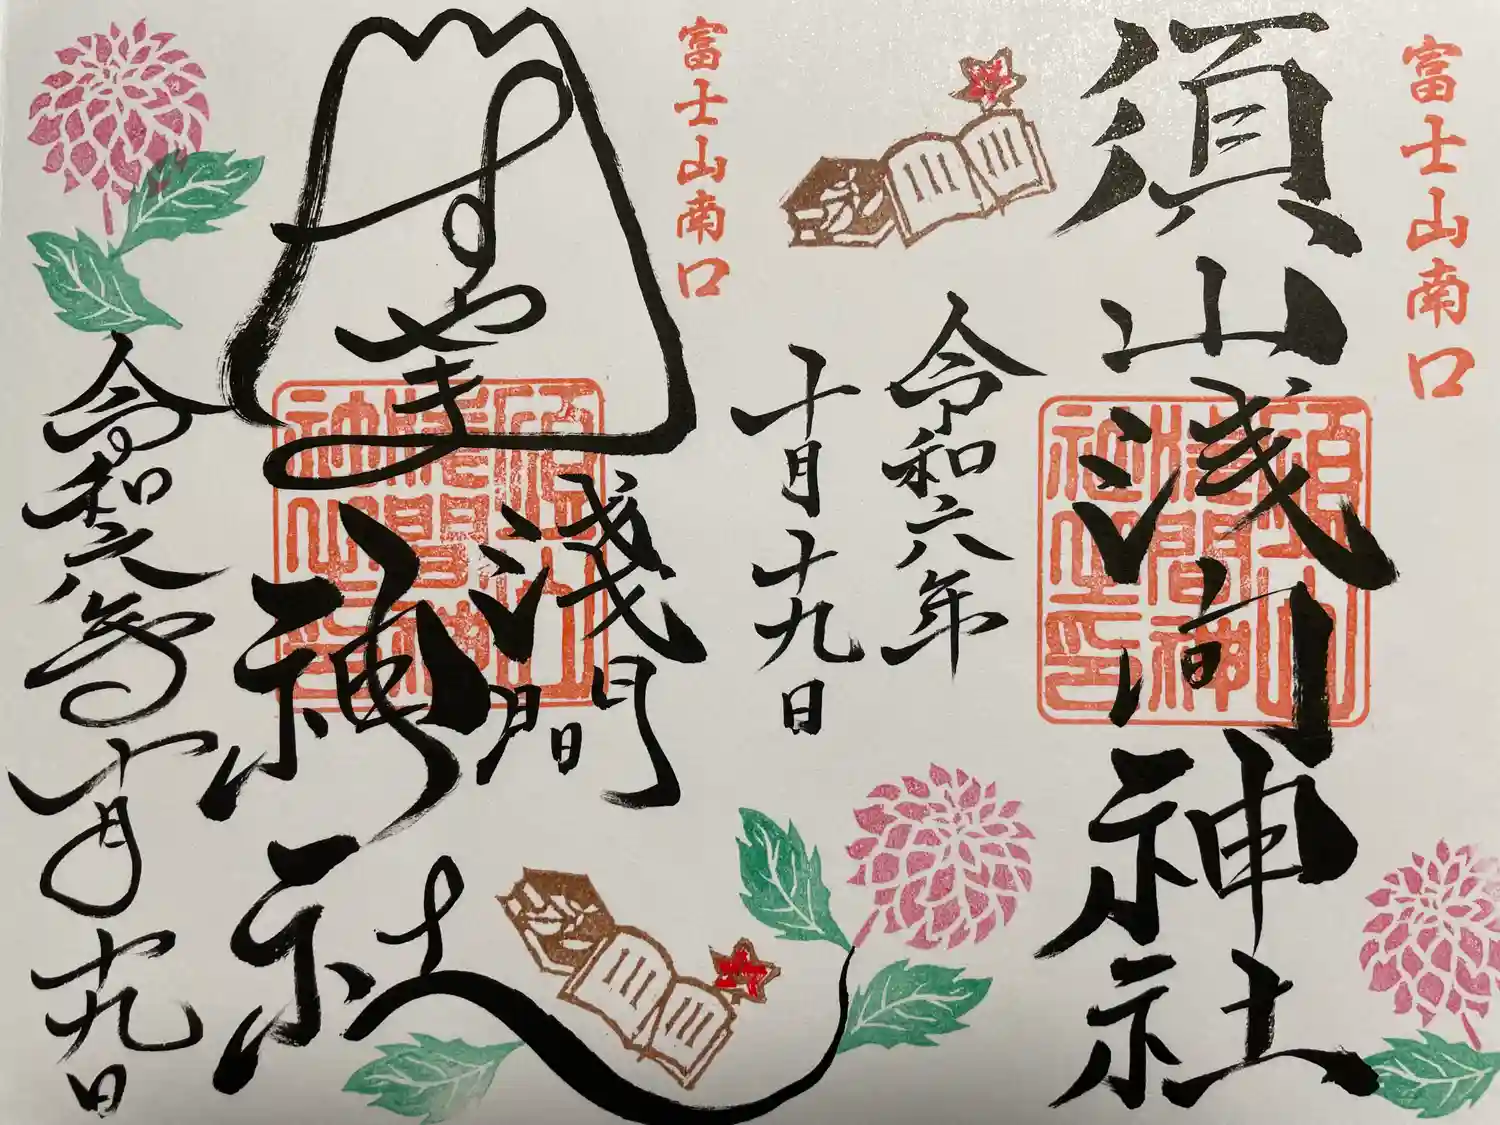 富士山南口
須山浅間神社
令和六年
十月十九日
富士山南口
すやま
浅間
神社
令和六年十月十九日
須山
浅間神
社之印
須山
浅間神
社之印